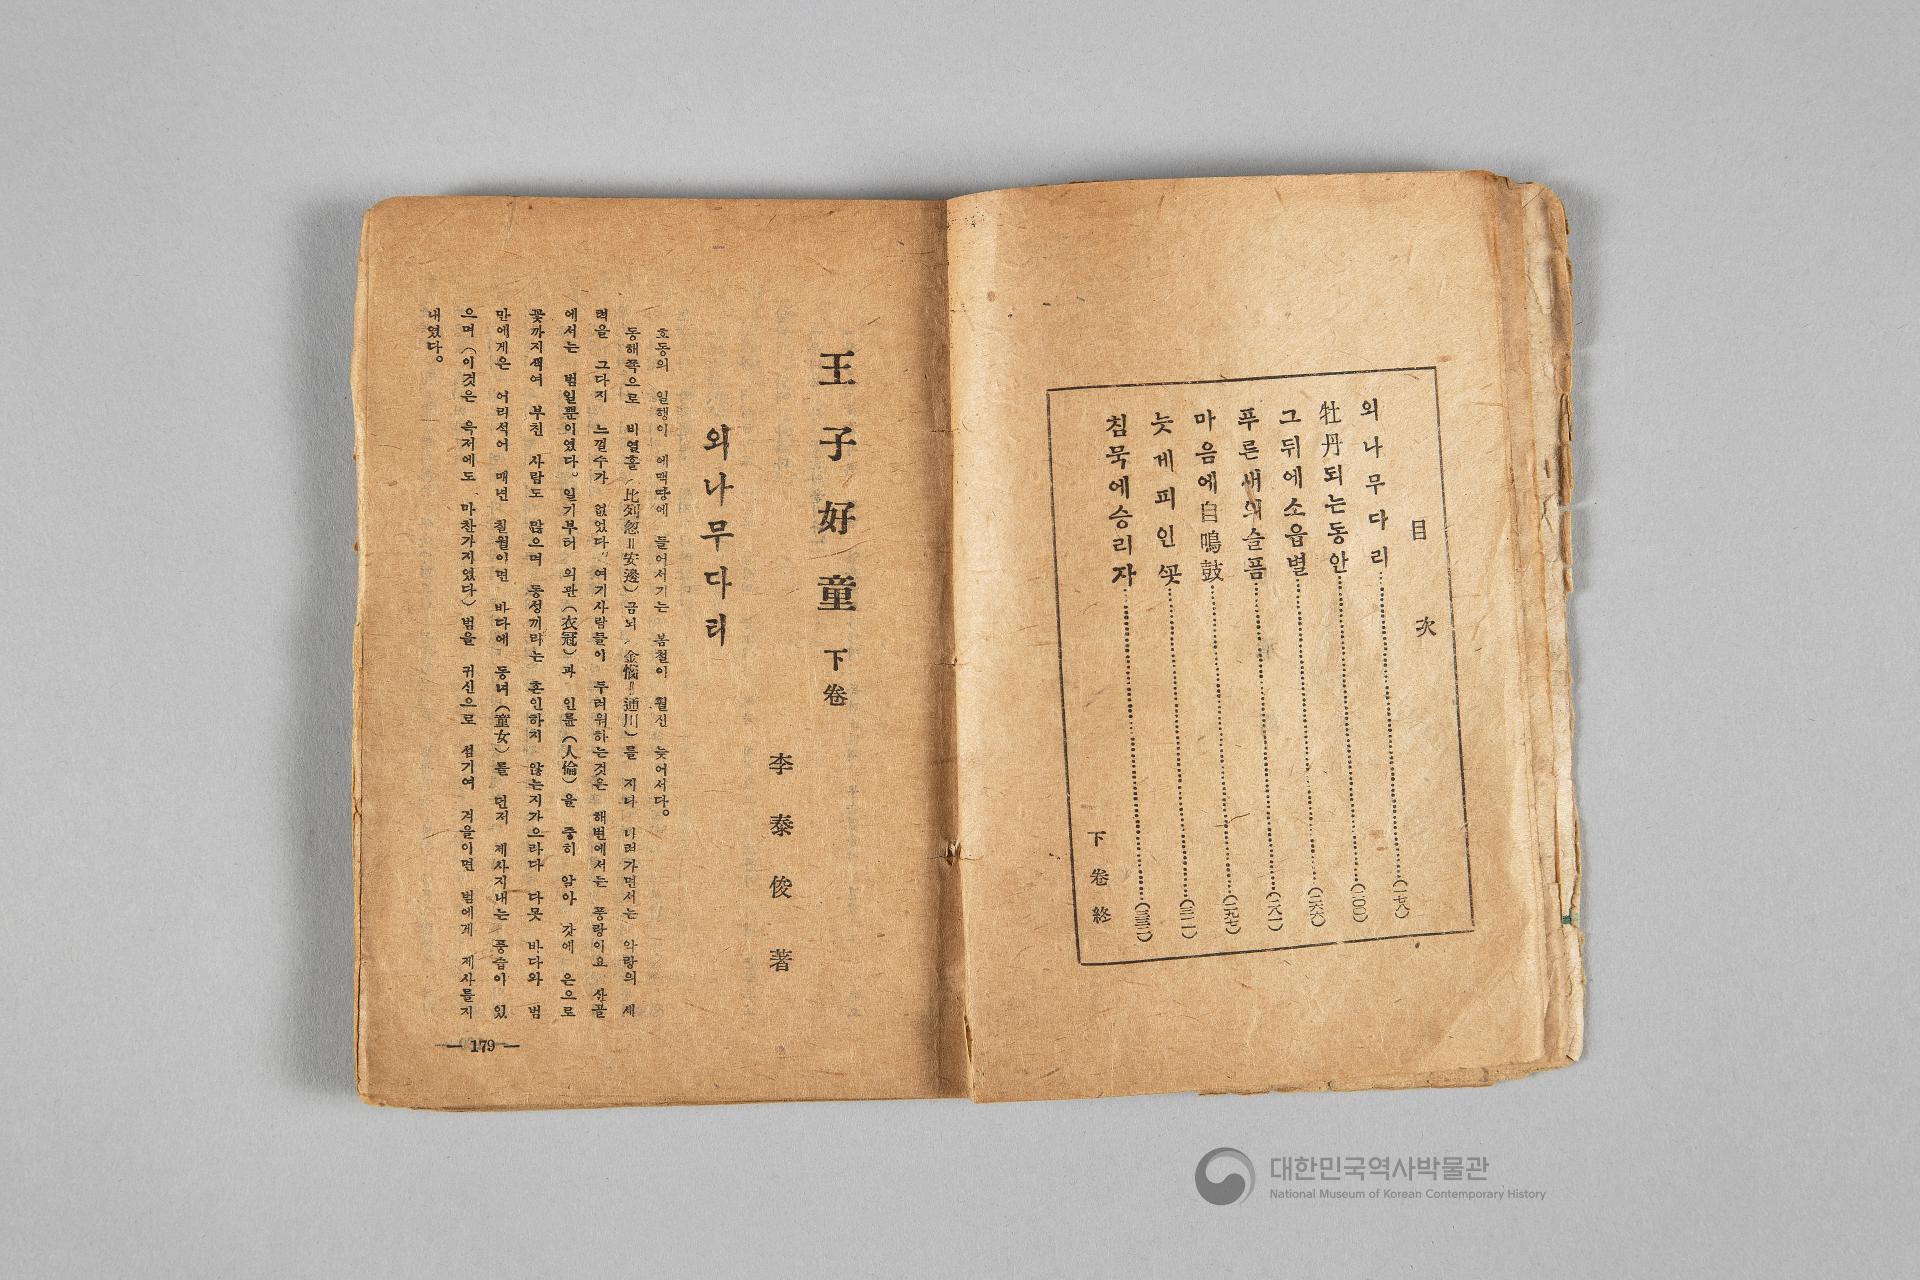 目次
외나무다리……(一七八)
牡丹되는동안……(二〇〇)
그뒤에소읍별……(二六六)
푸른새의슬픔……(二八一)
마음에自鳴鼓……(二九七)
늦게피인꽃……(三一一)
침묵에승리자……(三三二)
下卷終
王子好童 下卷
李泰俊 著
외나무다리
호동의 일행이 에맥땅에 들어서기는 봄철이 훨신 늦어서다。
동해쪽으로 비열홀(比列忽=安邊) 금뇌(金惱=通川)를 지나 나려가면서는 악랑의 세
력을 그다지 느낄수가 없었다。여기사람들이 두려워하는것은 해변에서는 풍랑이요 산골
에서는 범일뿐이였다。일기부터 의관(衣冠)과 인륜(人倫)을 중히 알아 갓에 은으로
꽃까지색여 부친 사람도 많으며 동성끼리는 혼인하지 않는지가으라다 다못 바다와 범
만에게은 어리석어 매년 칠월이면 바다에 동녀(童女)를 던저 제사지내는 풍습이 있
으며(이것은 옥저에도 마찬가지였다) 범을 귀신으로 섬기여 겨을이면 범에게 제사를지
내였다。
— 179 —
대한민국역사박물관
National Museum of Korean Contemporary History